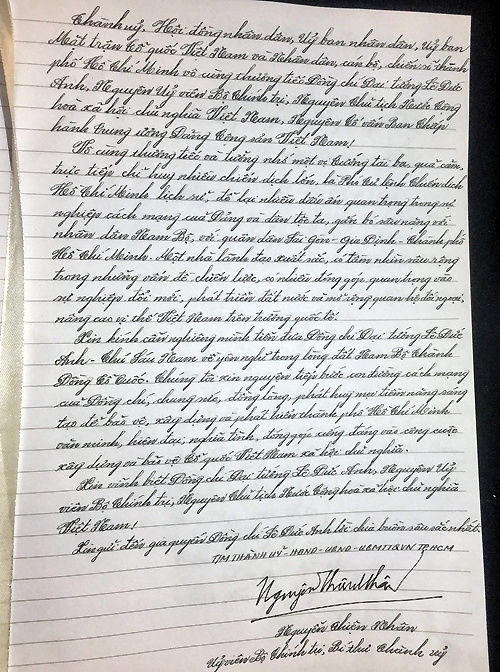 Thành uỷ, Hội đồng nhân dân, Uỷ ban nhân dân, Uỷ ban
Mặt trận Tổ quốc Việt Nam và Nhân dân, cán bộ, chiến sĩ thành
phố Hồ Chí Minh vô cùng thương tiếc Đồng chí Đại tướng Lê Đức
Anh, Nguyên Uỷ viên Bộ Chính trị, Nguyên Chủ tịch Nước Cộng
hoà xã hội chủ nghĩa Việt Nam, Nguyên Cố vấn Ban Chấp
hành Trung ương Đảng Cộng sản Việt Nam!
Vô cùng thương tiếc và tưởng nhớ một vị tướng tài ba, quả cảm,
trực tiếp chỉ huy nhiều chiến dịch lớn, là Phó Tư lệnh Chiến dịch
Hồ Chí Minh lịch sử, để lại nhiều dấu ấn quan trọng trong sự
nghiệp cách mạng của Đảng và dân tộc ta, gắn bó sâu nặng với
nhân dân Nam Bộ, với quân dân Sài Gòn - Gia Định - Thành phố
Hồ Chí Minh. Một nhà lãnh đạo xuất sắc, có tầm nhìn sâu rộng
trong những vấn đề chiến lược, có nhiều đóng góp quan trọng vào
sự nghiệp đổi mới, phát triển đất nước và mở rộng quan hệ đối ngoại,
nâng cao vị thế Việt Nam trên trường quốc tế!
Xin kính cẩn nghiêng mình tiễn đưa Đồng chí Đại tướng Lê Đức
Anh - Chú Sáu Nam về yên nghỉ trong lòng đất Nam Bộ Thành
Đồng Tổ Quốc. Chúng tôi xin nguyện tiếp bước con đường cách mạng
của Đồng chí, chung sức, đồng lòng, phát huy mọi tiềm năng sáng
tạo để bảo vệ, xây dựng và phát triển thành phố Hồ Chí Minh
văn minh, hiện đại, nghĩa tình, đóng góp xứng đáng vào công cuộc
xây dựng và bảo vệ Tổ quốc Việt Nam xã hội chủ nghĩa.
Xin vĩnh biệt Đồng chí Đại tướng Lê Đức Anh, Nguyên Uỷ
viên Bộ Chính trị, Nguyên Chủ tịch Nước Cộng hoà xã hội chủ nghĩa
Việt Nam!
Xin gửi đến gia quyến Đồng chí Lê Đức Anh lời chia buồn sâu sắc nhất.
TM THÀNH UỶ - HĐND - UBND - UBMTTQVN TP HCM
Nguyễn Thiện Nhân
Nguyễn Thiện Nhân
Uỷ viên Bộ Chính trị, Bí thư Thành uỷ